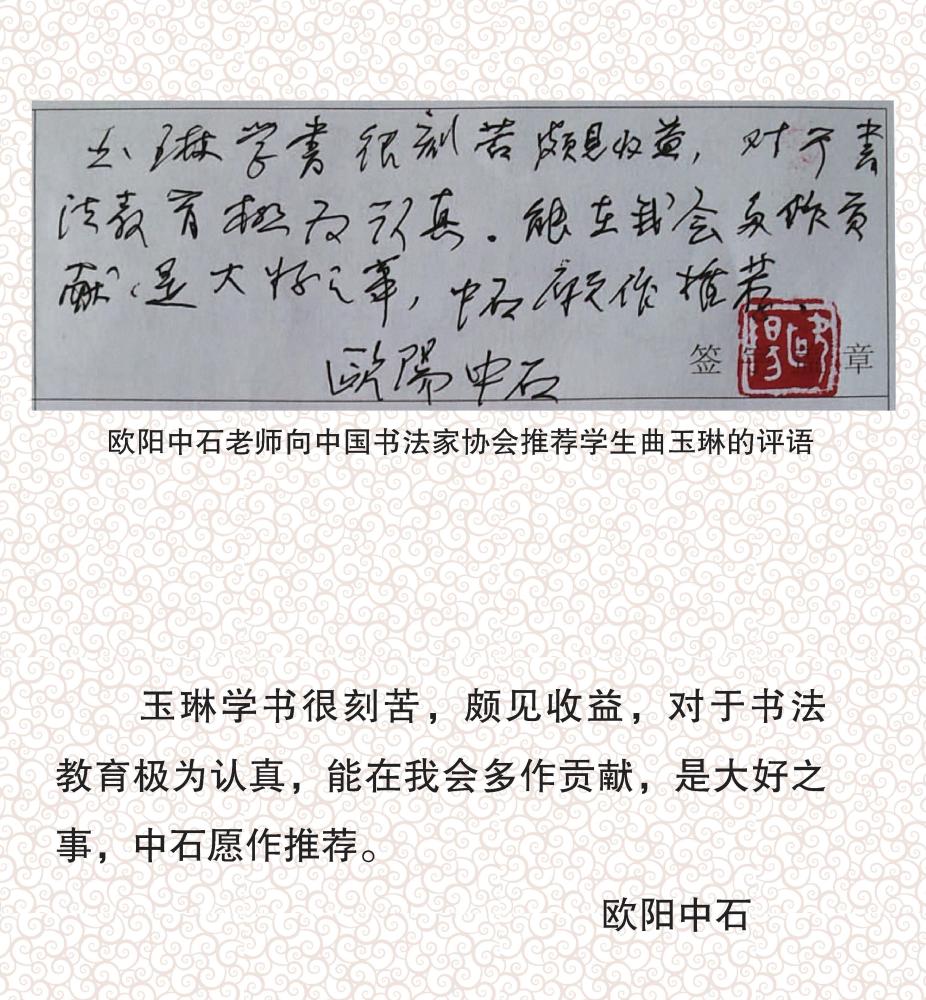 玉琳学書很刻苦颇见收益，对于書
法教育极为认真。能在我会多作贡
献、是大好之事，中石愿作推荐、
签 章
歐陽中石
欧阳中石老师向中国书法家协会推荐学生曲玉琳的评语
玉琳学书很刻苦，颇见收益，对于书法
教育极为认真，能在我会多作贡献，是大好之
事，中石愿作推荐。
欧阳中石